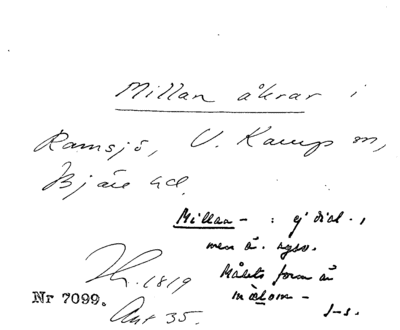 Millan åkrar i
Ramsjö, V. Karup sn,
Bjäre hd.
Millan - : ej dial.,
men ä. nysv.
Målets form är
mælom -
J-s.
1819
Nr 7099.
35.